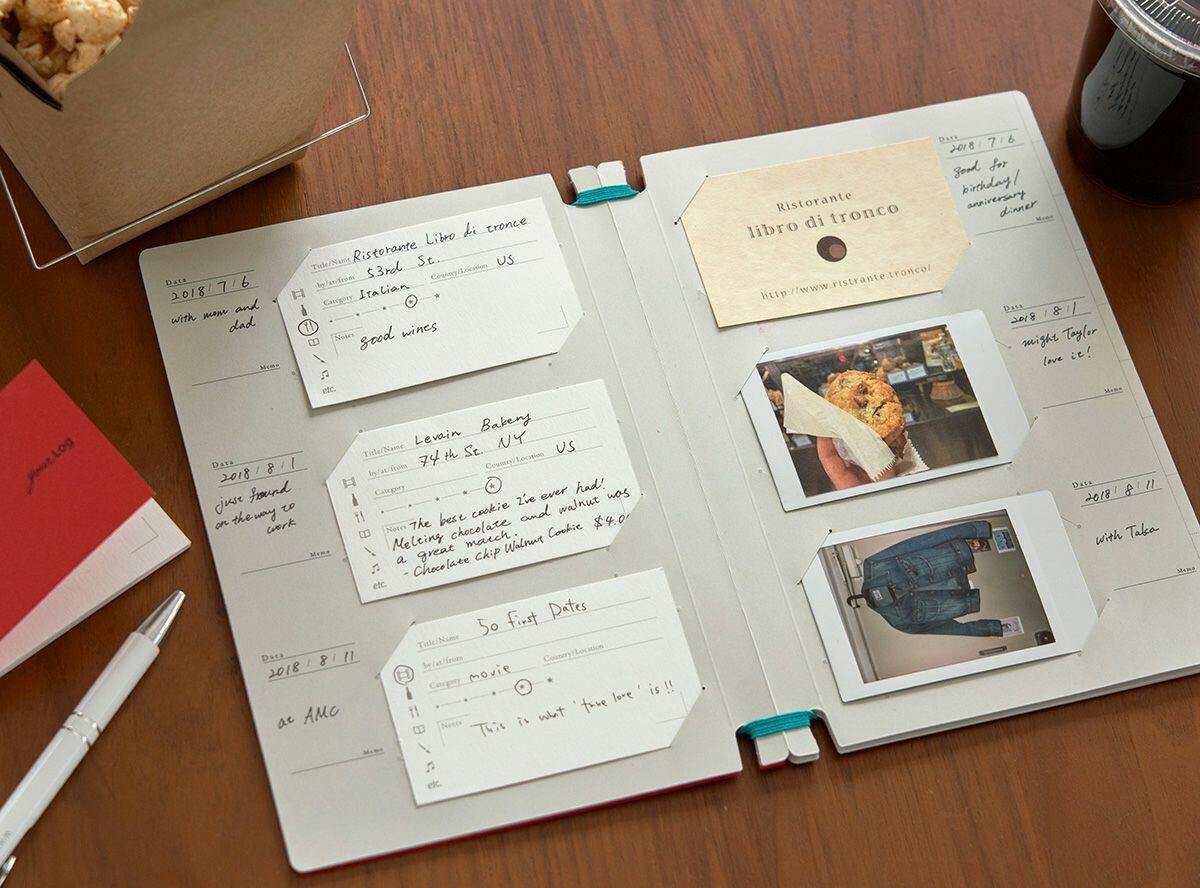 Data
2018 / 7 / 6
with mom and
dad
Memo
Title/Name Ristorante Libro di tronce
by/at/from 53rd St.
Category Italian Country/Location US
Notes good wines
etc.
Data
2018 / 8 / 1
just found
on the way to
work
Memo
Title/Name Levain Bakery
by/at/from 74th St. NY
Category Country/Location US
Notes The best cookie I've ever had!
Melting chocolate and walnut was
a great match.
- Chocolate Chip Walnut Cookie $4.0
etc.
Data
2018 / 8 / 11
at AMC
Memo
Title/Name 50 First Dates
by/at/from
Category movie Country/Location
Notes This is what 'true love' is!!
etc.
Ristorante
libro di tronco
http://www.ristrante.tronco/
Data
2018 / 7 / 6
good for
birthday/
anniversary
dinner
Memo
Data
2018 / 8 / 1
might Taylor
love it!
Memo
Data
2018 / 8 / 11
with Taka
Memo
your LOG